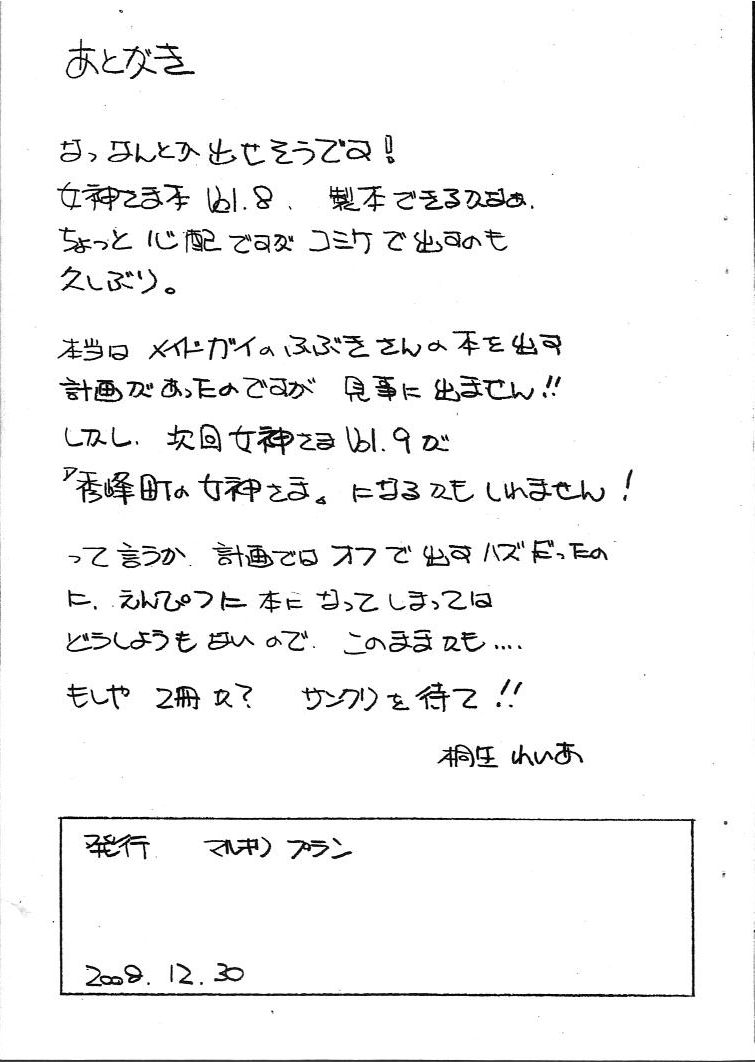 あとがき
なっなんとか出せそうです！
女神さま本 Vol.8、製本できるかなぁ、
ちょっと心配ですが コミケで出すのも
久しぶり。
本当は メイドガイのふぶきさんの本を出す
計画があったのですが 見事に出ません!!
しかし、次回女神さまVol.9が
『秀峰町の女神さま』になるかもしれません！
って言うか 計画ではオフで出すハズだったの
に、えんぴつに本になってしまっては
どうしようもないので、このままかも‥‥
もしや 2冊か？ サンクリを待て!!
桐生れいあ
発行 マルキリ プラン
2008.12.30